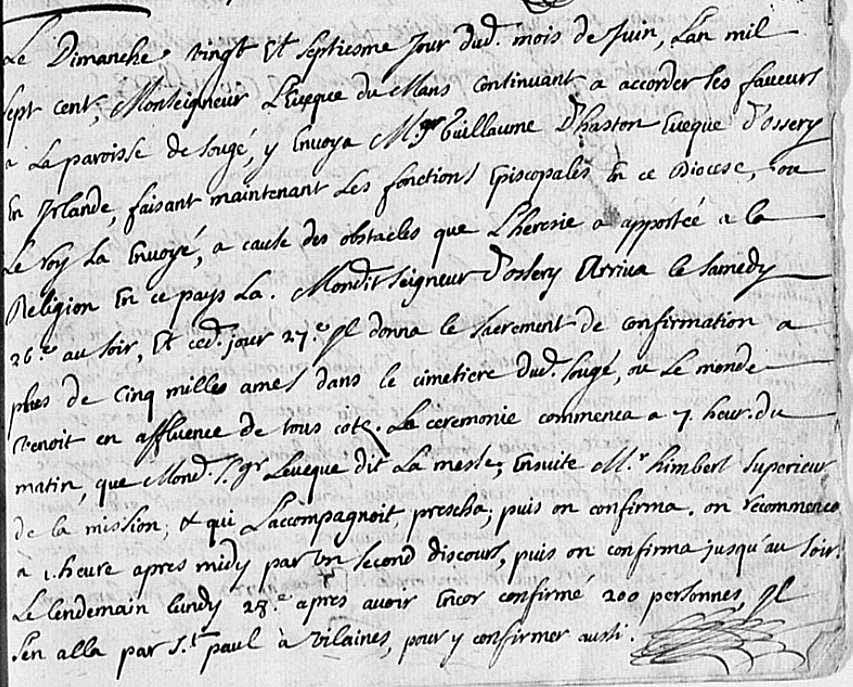 Le Dimanche vingt et septiesme Jour dud. mois de Juin, L'an mil
sept cent, Monseigneur L'Eveque du Mans continuant a accorder ses faveurs
a La paroisse de Sougé, y Envoya M.gr Guillaume D'haston Eveque d'Ossery
En Irlande, faisant maintenant Les fonctions Episcopales En ce Diocese, ou
Le Roy La Envoyé, a cause des obstacles que L'heresie a apportée a la
Religion En ce pays La. Mondit seigneur d'ossery Arriva le samedy
26.e au soir, Et ced. jour 27.e Il donna le sacrement de confirmation a
plus de Cinq milles ames dans le cimetiere dud. Sougé, ou Le monde
venoit en affluence de tous cote. La ceremonie commenca a 7. heur. du
matin, que Mond. S.gr Leveque dit La messe; Ensuite M.r himbert superieur
de la mission, & qui L'accompagnoit, prescha; puis on confirma. on recommenca
a 1. heure apres midy par un second discours, puis on confirma jusqu'au soir.
Le lendemain lundy 28.e apres avoir Encor confirmé 200 personnes, Il
s'en alla par S.t paul à vilaines, pour y confirmer aussi.